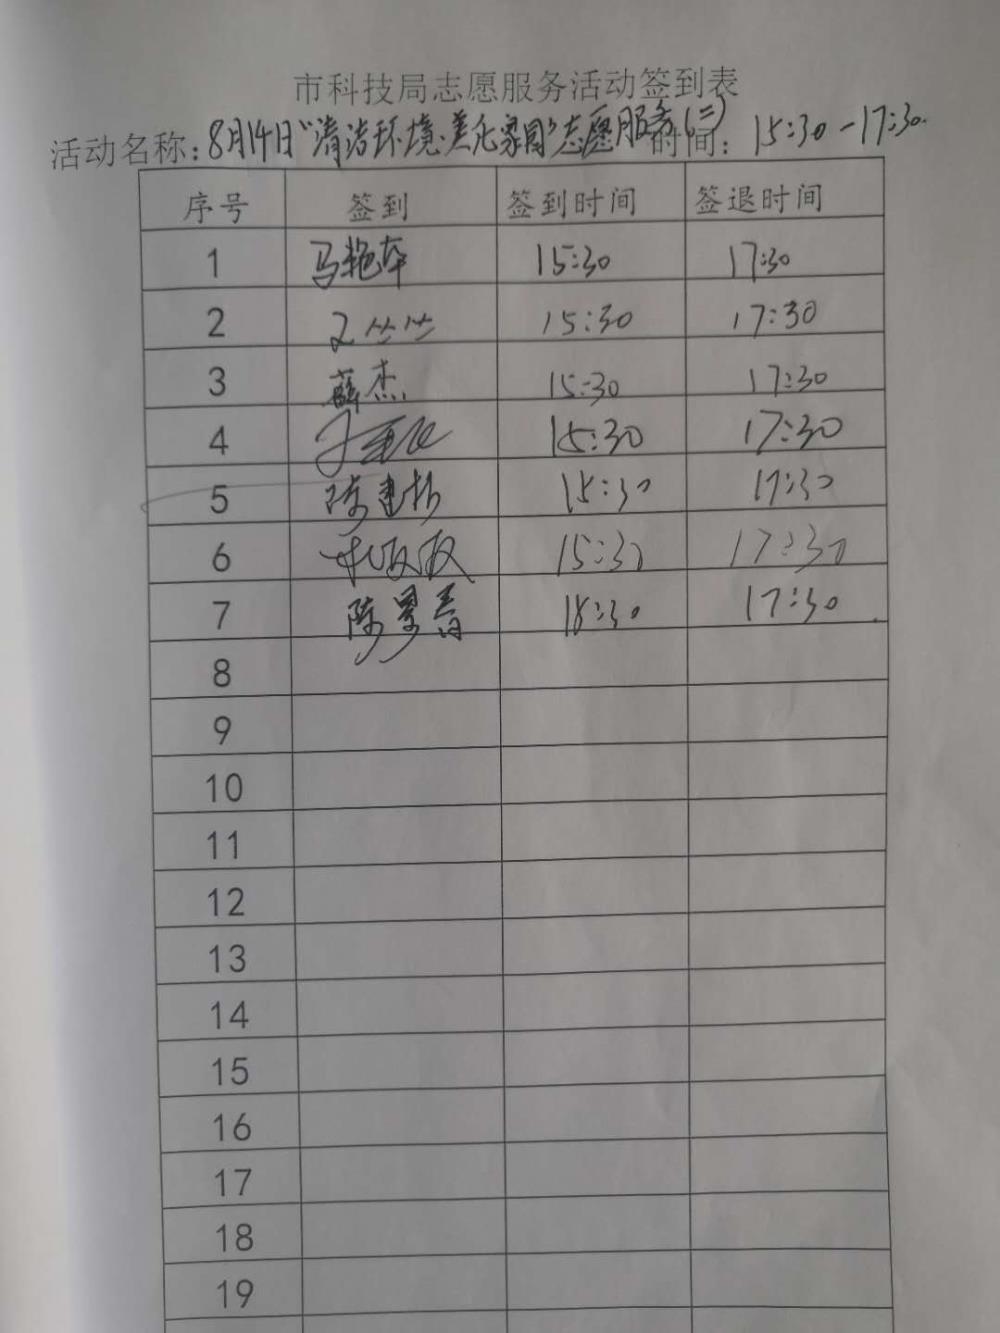 市科技局志愿服务活动签到表
活动名称:8月14日"清洁环境·美化家园"志愿服务(二) 时间:15:30-17:30.
序号 签到 签到时间 签退时间
1 马艳 15:30 17:30
2 15:30 17:30
3 薛杰 15:30 17:30
4 15:30 17:30
5 陈建 15:30 17:30
6 15:30 17:30
7 陈景春 15:30 17:30
8
9
10
11
12
13
14
15
16
17
18
19